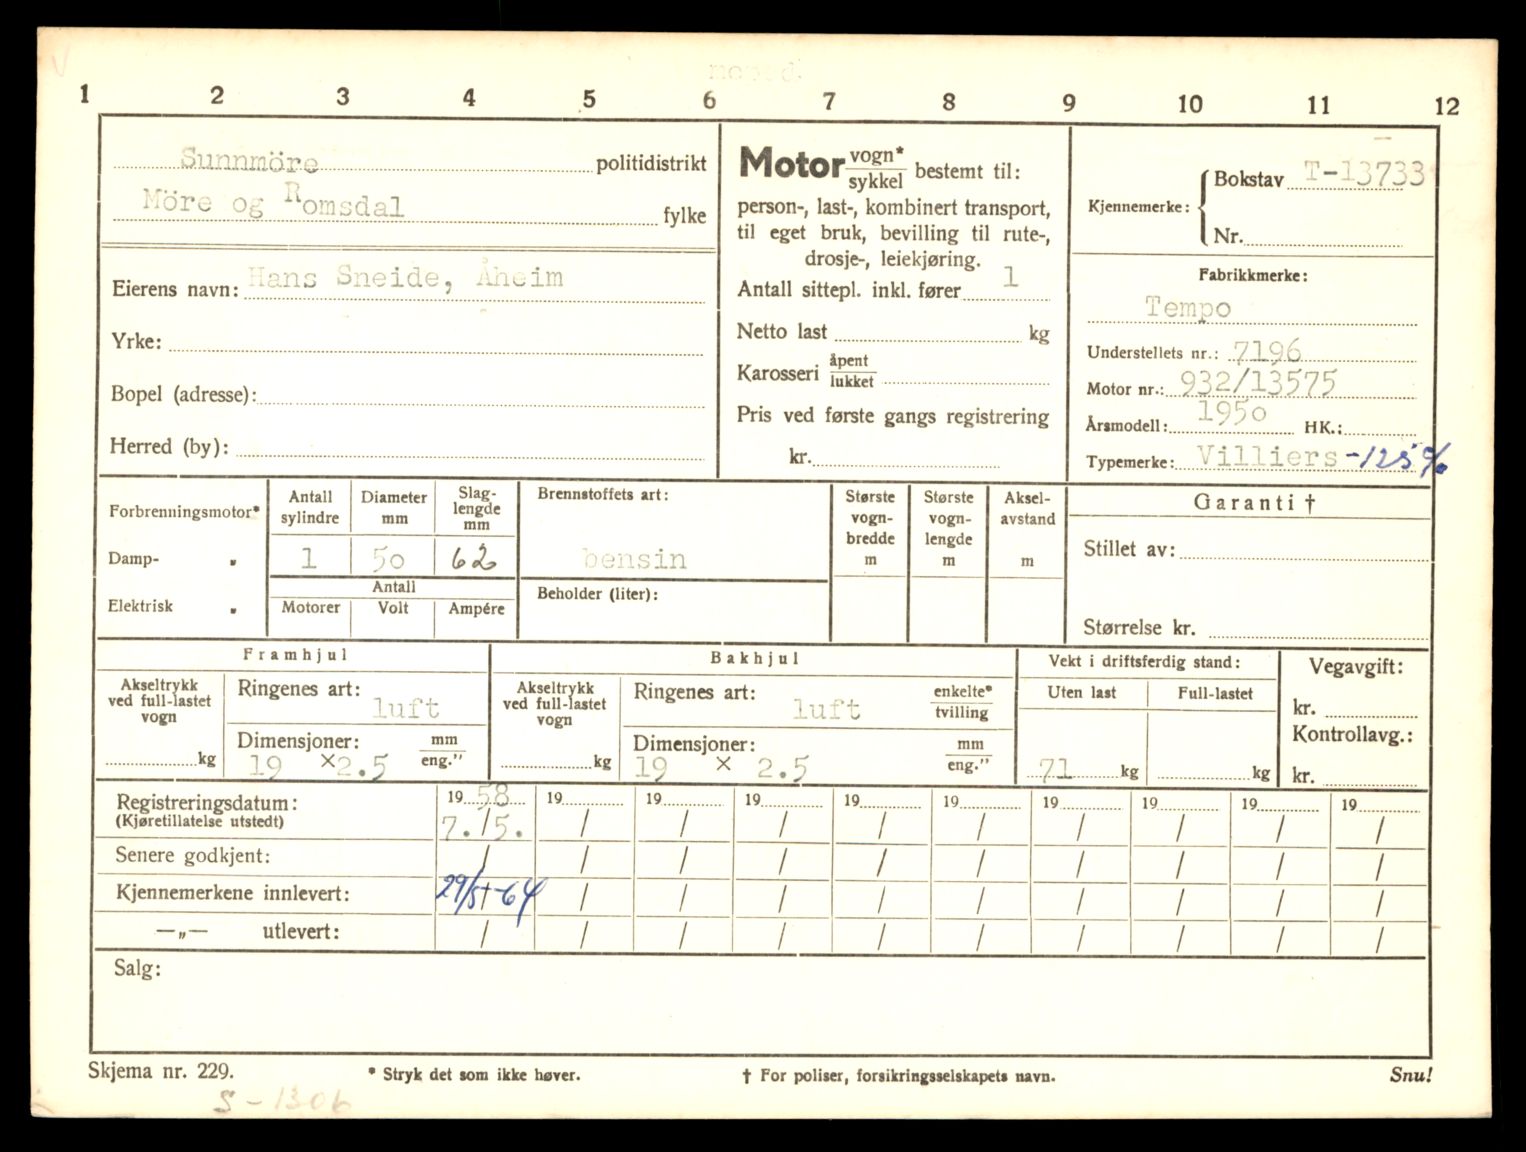 moped.
1 2 3 4 5 6 7 8 9 10 11 12
Sunnmöre politidistrikt
Möre og Romsdal fylke
Eierens navn: Hans Sneide, Åheim
Yrke:
Bopel (adresse):
Herred (by):
Motor vogn* sykkel bestemt til:
person-, last-, kombinert transport,
til eget bruk, bevilling til rute-,
drosje-, leiekjøring.
Antall sittepl. inkl. fører 1
Netto last kg
Karosseri åpent lukket
Pris ved første gangs registrering
kr.
Kjennemerke: Bokstav T-13733
Nr.
Fabrikkmerke:
Tempo
Understellets nr.: 7196
Motor nr.: 932/13575
Årsmodell: 1950 HK.:
Typemerke: Villiers -125 %
Forbrenningsmotor*
Damp- "
Elektrisk "
Antall sylindre
1
Diameter mm
50
Slag-lengde mm
62
Antall
Motorer Volt Ampére
Brennstoffets art:
bensin
Beholder (liter):
Største vogn-bredde m
Største vogn-lengde m
Aksel-avstand m
Garanti †
Stillet av:
Størrelse kr.
Framhjul
Akseltrykk ved full-lastet vogn
kg
Ringenes art: luft
Dimensjoner: mm eng."
19 × 2.5
Bakhjul
Akseltrykk ved full-lastet vogn
kg
Ringenes art: luft enkelte* tvilling
Dimensjoner: mm eng."
19 × 2.5
Vekt i driftsferdig stand:
Uten last Full-lastet
71 kg kg
Vegavgift:
kr.
Kontrollavg.:
kr.
Registreringsdatum: 19 58 19 19 19 19 19 19 19 19 19
(Kjøretillatelse utstedt) 7./5. / / / / / / / / /
Senere godkjent: / / / / / / / / / /
Kjennemerkene innlevert: 29/5-64 / / / / / / / / /
—„— utlevert: / / / / / / / / / /
Salg:
Skjema nr. 229. * Stryk det som ikke høver. † For poliser, forsikringsselskapets navn. Snu!
S-1306